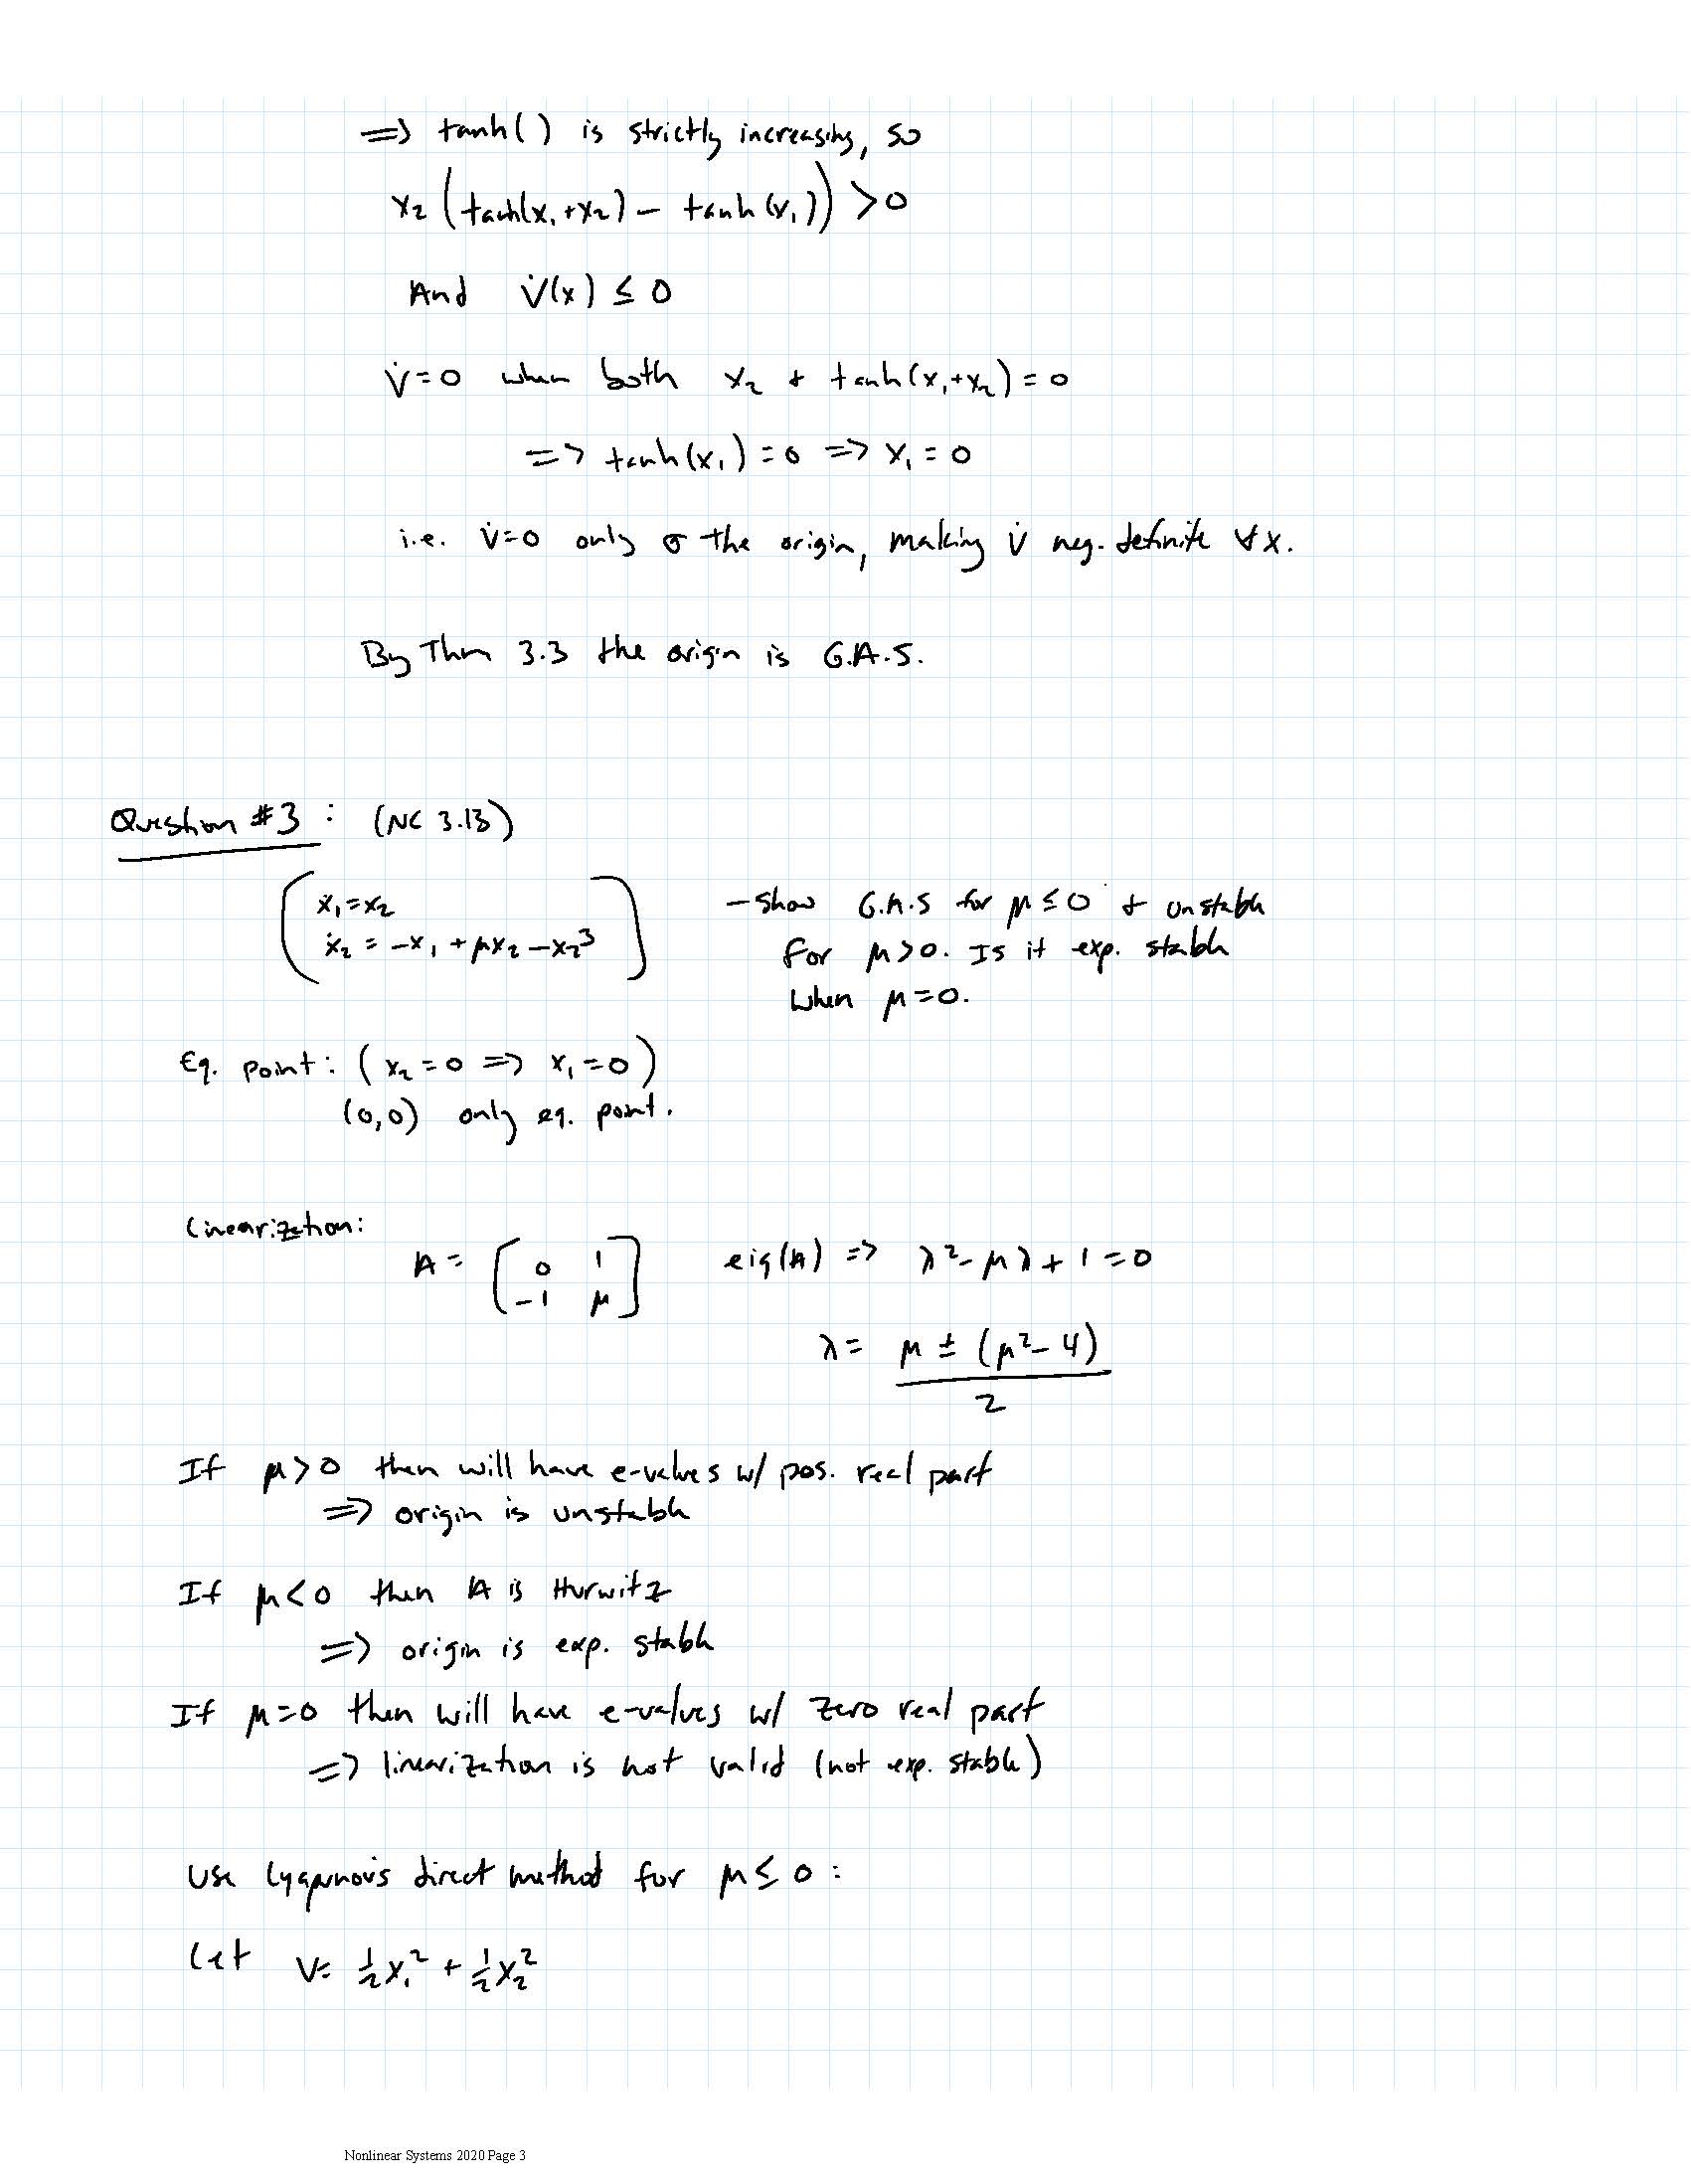 => tanh( ) is strictly increasing, so
x₂(tanh(x₁+x₂) - tanh(x₁)) > 0
And V̇(x) ≤ 0
V̇=0 when both x₂ + tanh(x₁+x₂) = 0
=> tanh(x₁) = 0 => x₁ = 0
i.e. V̇=0 only @ the origin, making V̇ neg. definite ∀x.
By Thm 3.3 the origin is G.A.S.
Question #3 : (NC 3.13)
ẋ₁ = x₂
ẋ₂ = -x₁ + μx₂ - x₂³
- Show G.A.S for μ ≤ 0 + unstable
for μ>0. Is it exp. stable
when μ=0.
Eq. point: (x₂ = 0 => x₁ = 0)
(0,0) only eq. point.
Linearization:
A = [0 1
-1 μ] eig(A) => λ² - μλ + 1 = 0
λ = μ ± (μ² - 4)
2
If μ>0 then will have e-values w/ pos. real part
=> origin is unstable
If μ<0 then A is Hurwitz
=> origin is exp. stable
If μ=0 then will have e-values w/ zero real part
=> linearization is not valid (not exp. stable)
Use Lyapunov's direct method for μ ≤ 0 :
Let V= ½x₁² + ½x₂²
Nonlinear Systems 2020 Page 3